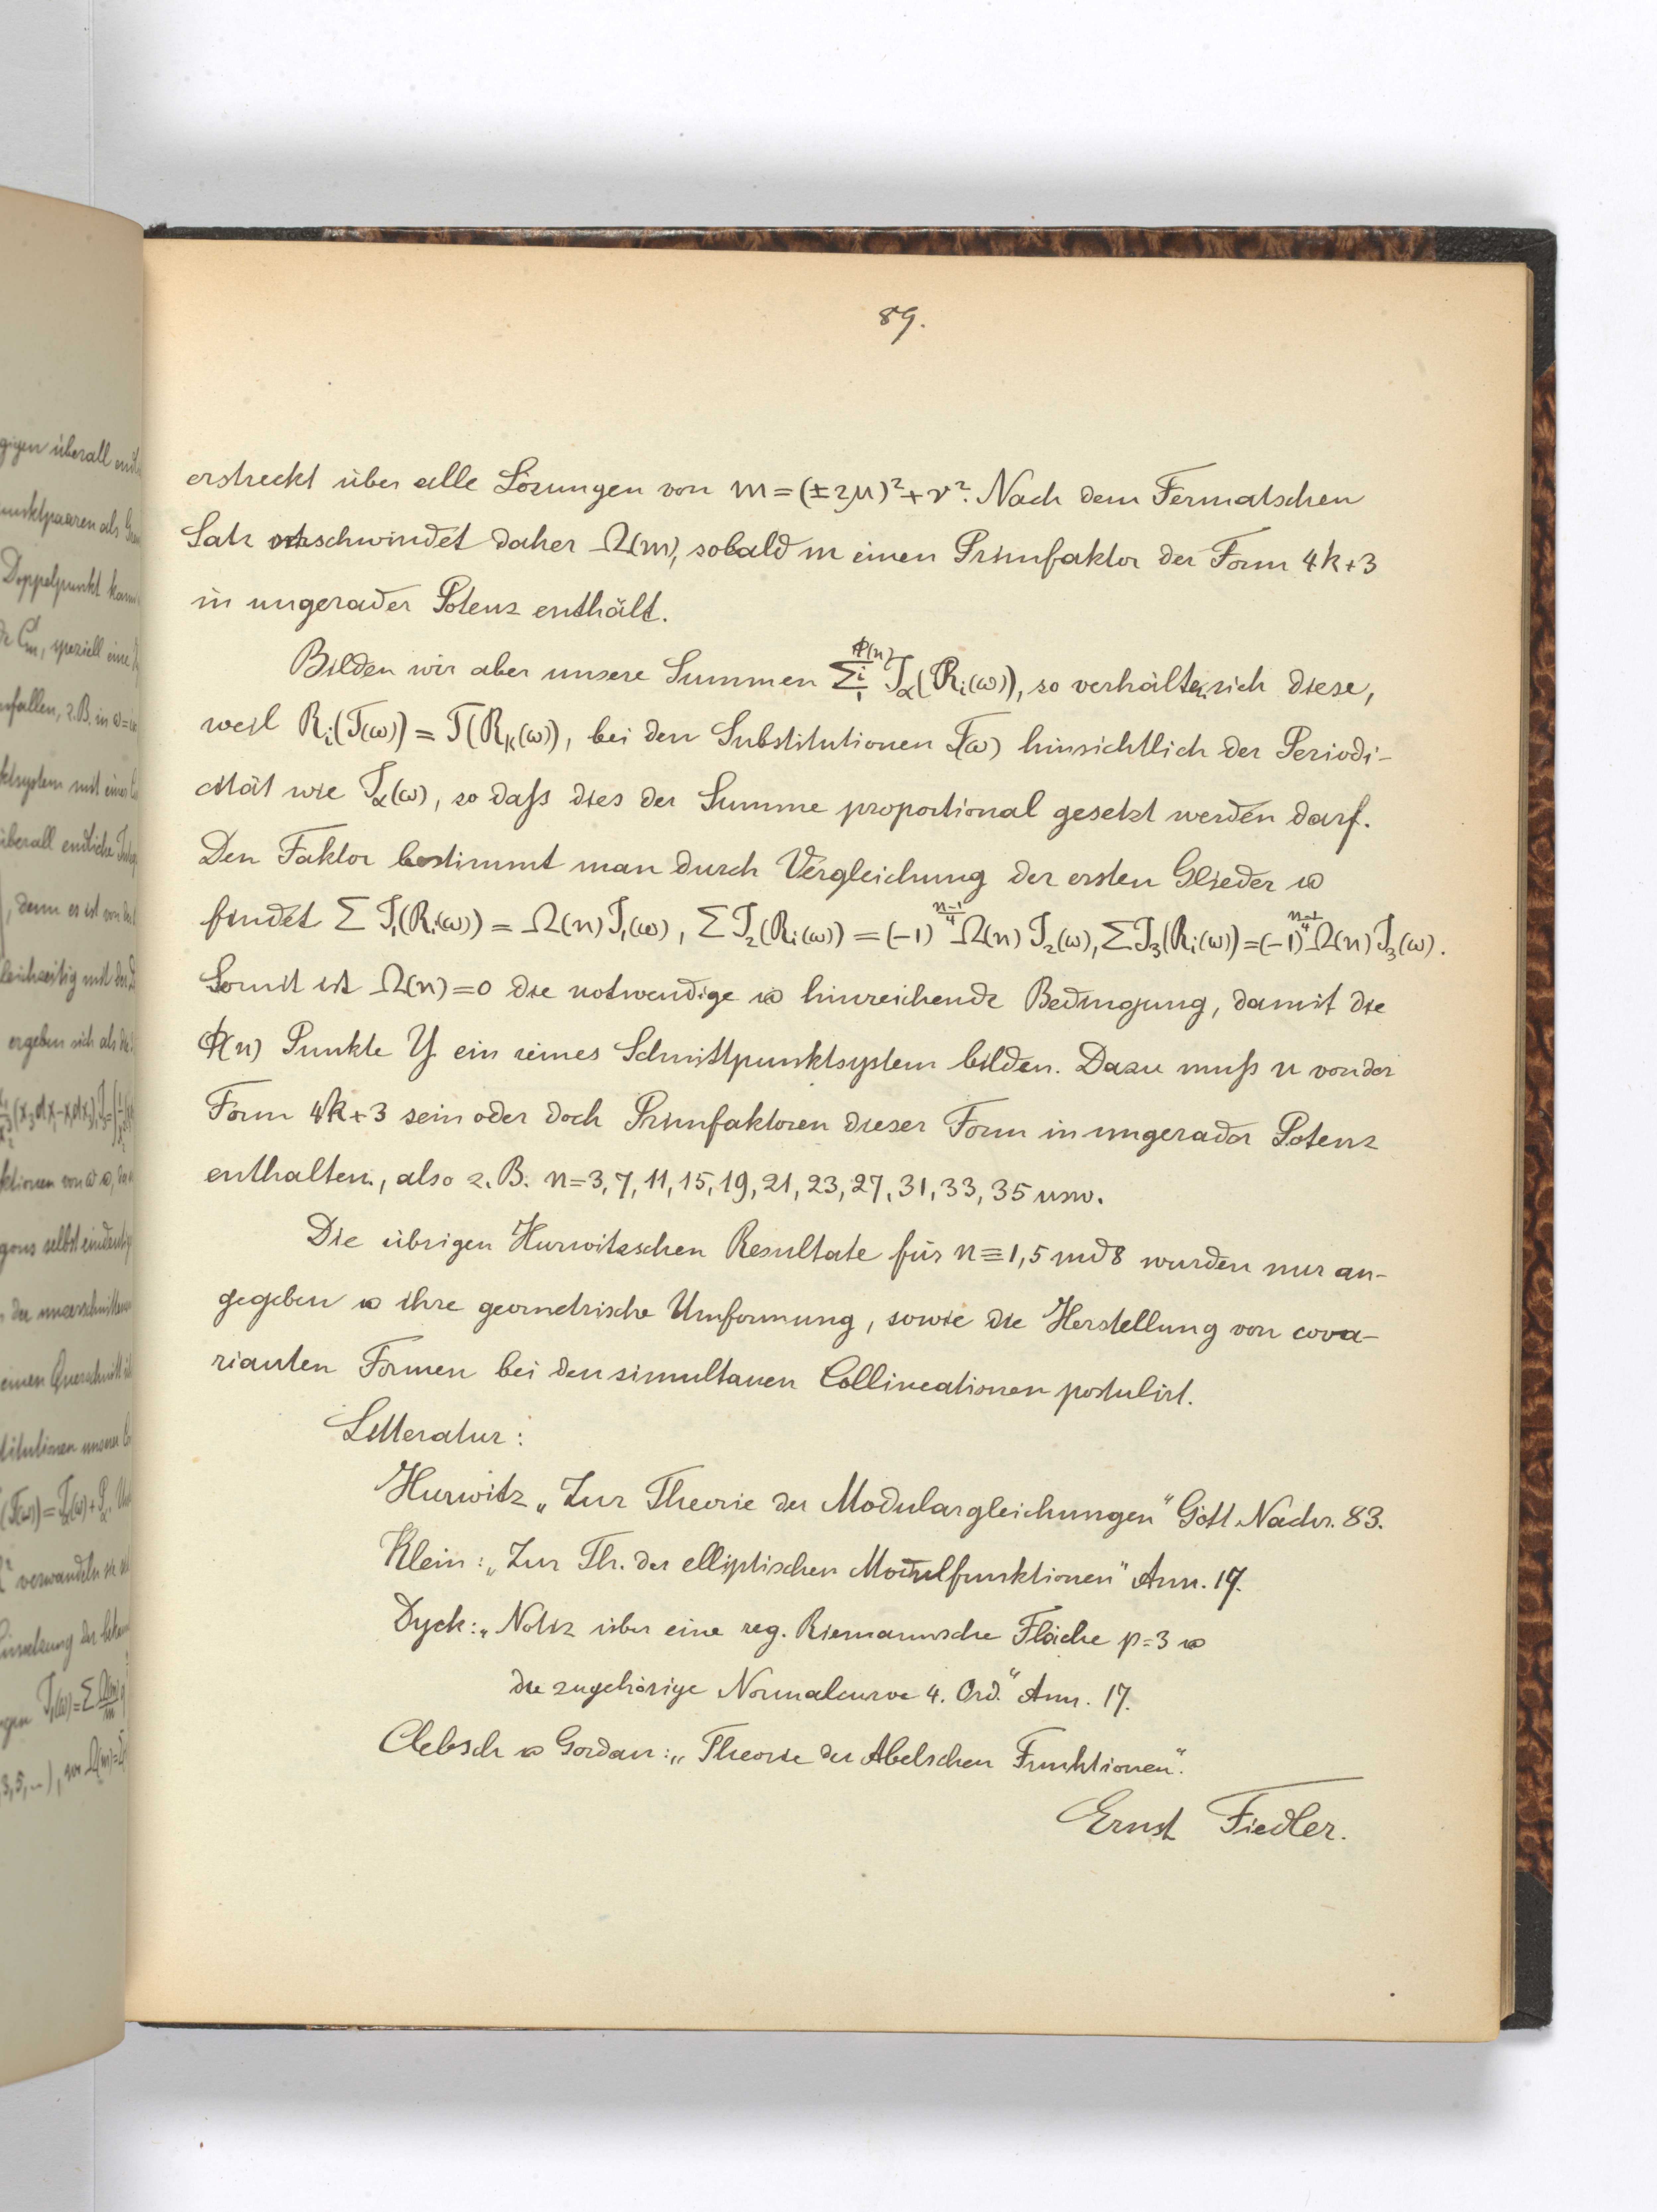 89.
erstreckt über alle Lösungen von m = (±2μ)² + ν². Nach dem Fermatschen
Satz verschwindet daher Ω(m), sobald m einen Primfaktor der Form 4k+3
in ungerader Potenz enthält.
Bilden wir aber unsere Summen Σ_1^{Φ(n)} i J_α(R_i(ω)), so verhalten sich diese,
weil R_i(T(ω)) = T(R_k(ω)), bei den Substitutionen T(ω) hinsichtlich der Periodi-
cität wie J_α(ω), so daſs dies der Summe proportional gesetzt werden darf.
Den Faktor bestimmt man durch Vergleichung der ersten Glieder u
findet Σ J_1(R_i(ω)) = Ω(n) J_1(ω), Σ J_2(R_i(ω)) = (-1)^{\frac{n-1}{4}} Ω(n) J_2(ω), Σ J_3(R_i(ω)) = (-1)^{\frac{n-1}{4}} Ω(n) J_3(ω).
Somit ist Ω(n) = 0 die notwendige u hinreichende Bedingung, damit die
Φ(n) Punkte Y ein reines Schnittpunktsystem bilden. Dazu muſs n von der
Form 4k+3 sein oder doch Primfaktoren dieser Form in ungerader Potenz
enthalten, also z. B. n = 3, 7, 11, 15, 19, 21, 23, 27, 31, 33, 35 usw.
Die übrigen Hurwitzschen Resultate für n ≡ 1, 5 md 8 wurden nur an-
gegeben u ihre geometrische Umformung, sowie die Herstellung von cova-
rianten Formen bei den simultanen Collineationen postulirt.
Litteratur:
Hurwitz „Zur Theorie der Modulargleichungen“ Gött. Nachr. 83.
Klein: „Zur Th. der elliptischen Modulfunktionen“ Ann. 17.
Dyck: „Notiz über eine reg. Riemannsche Fläche p = 3 u
die zugehörige Normalcurve 4. Ord.“ Ann. 17.
Clebsch u Gordan: „Theorie der Abelschen Funktionen“.
Ernst Fiedler.